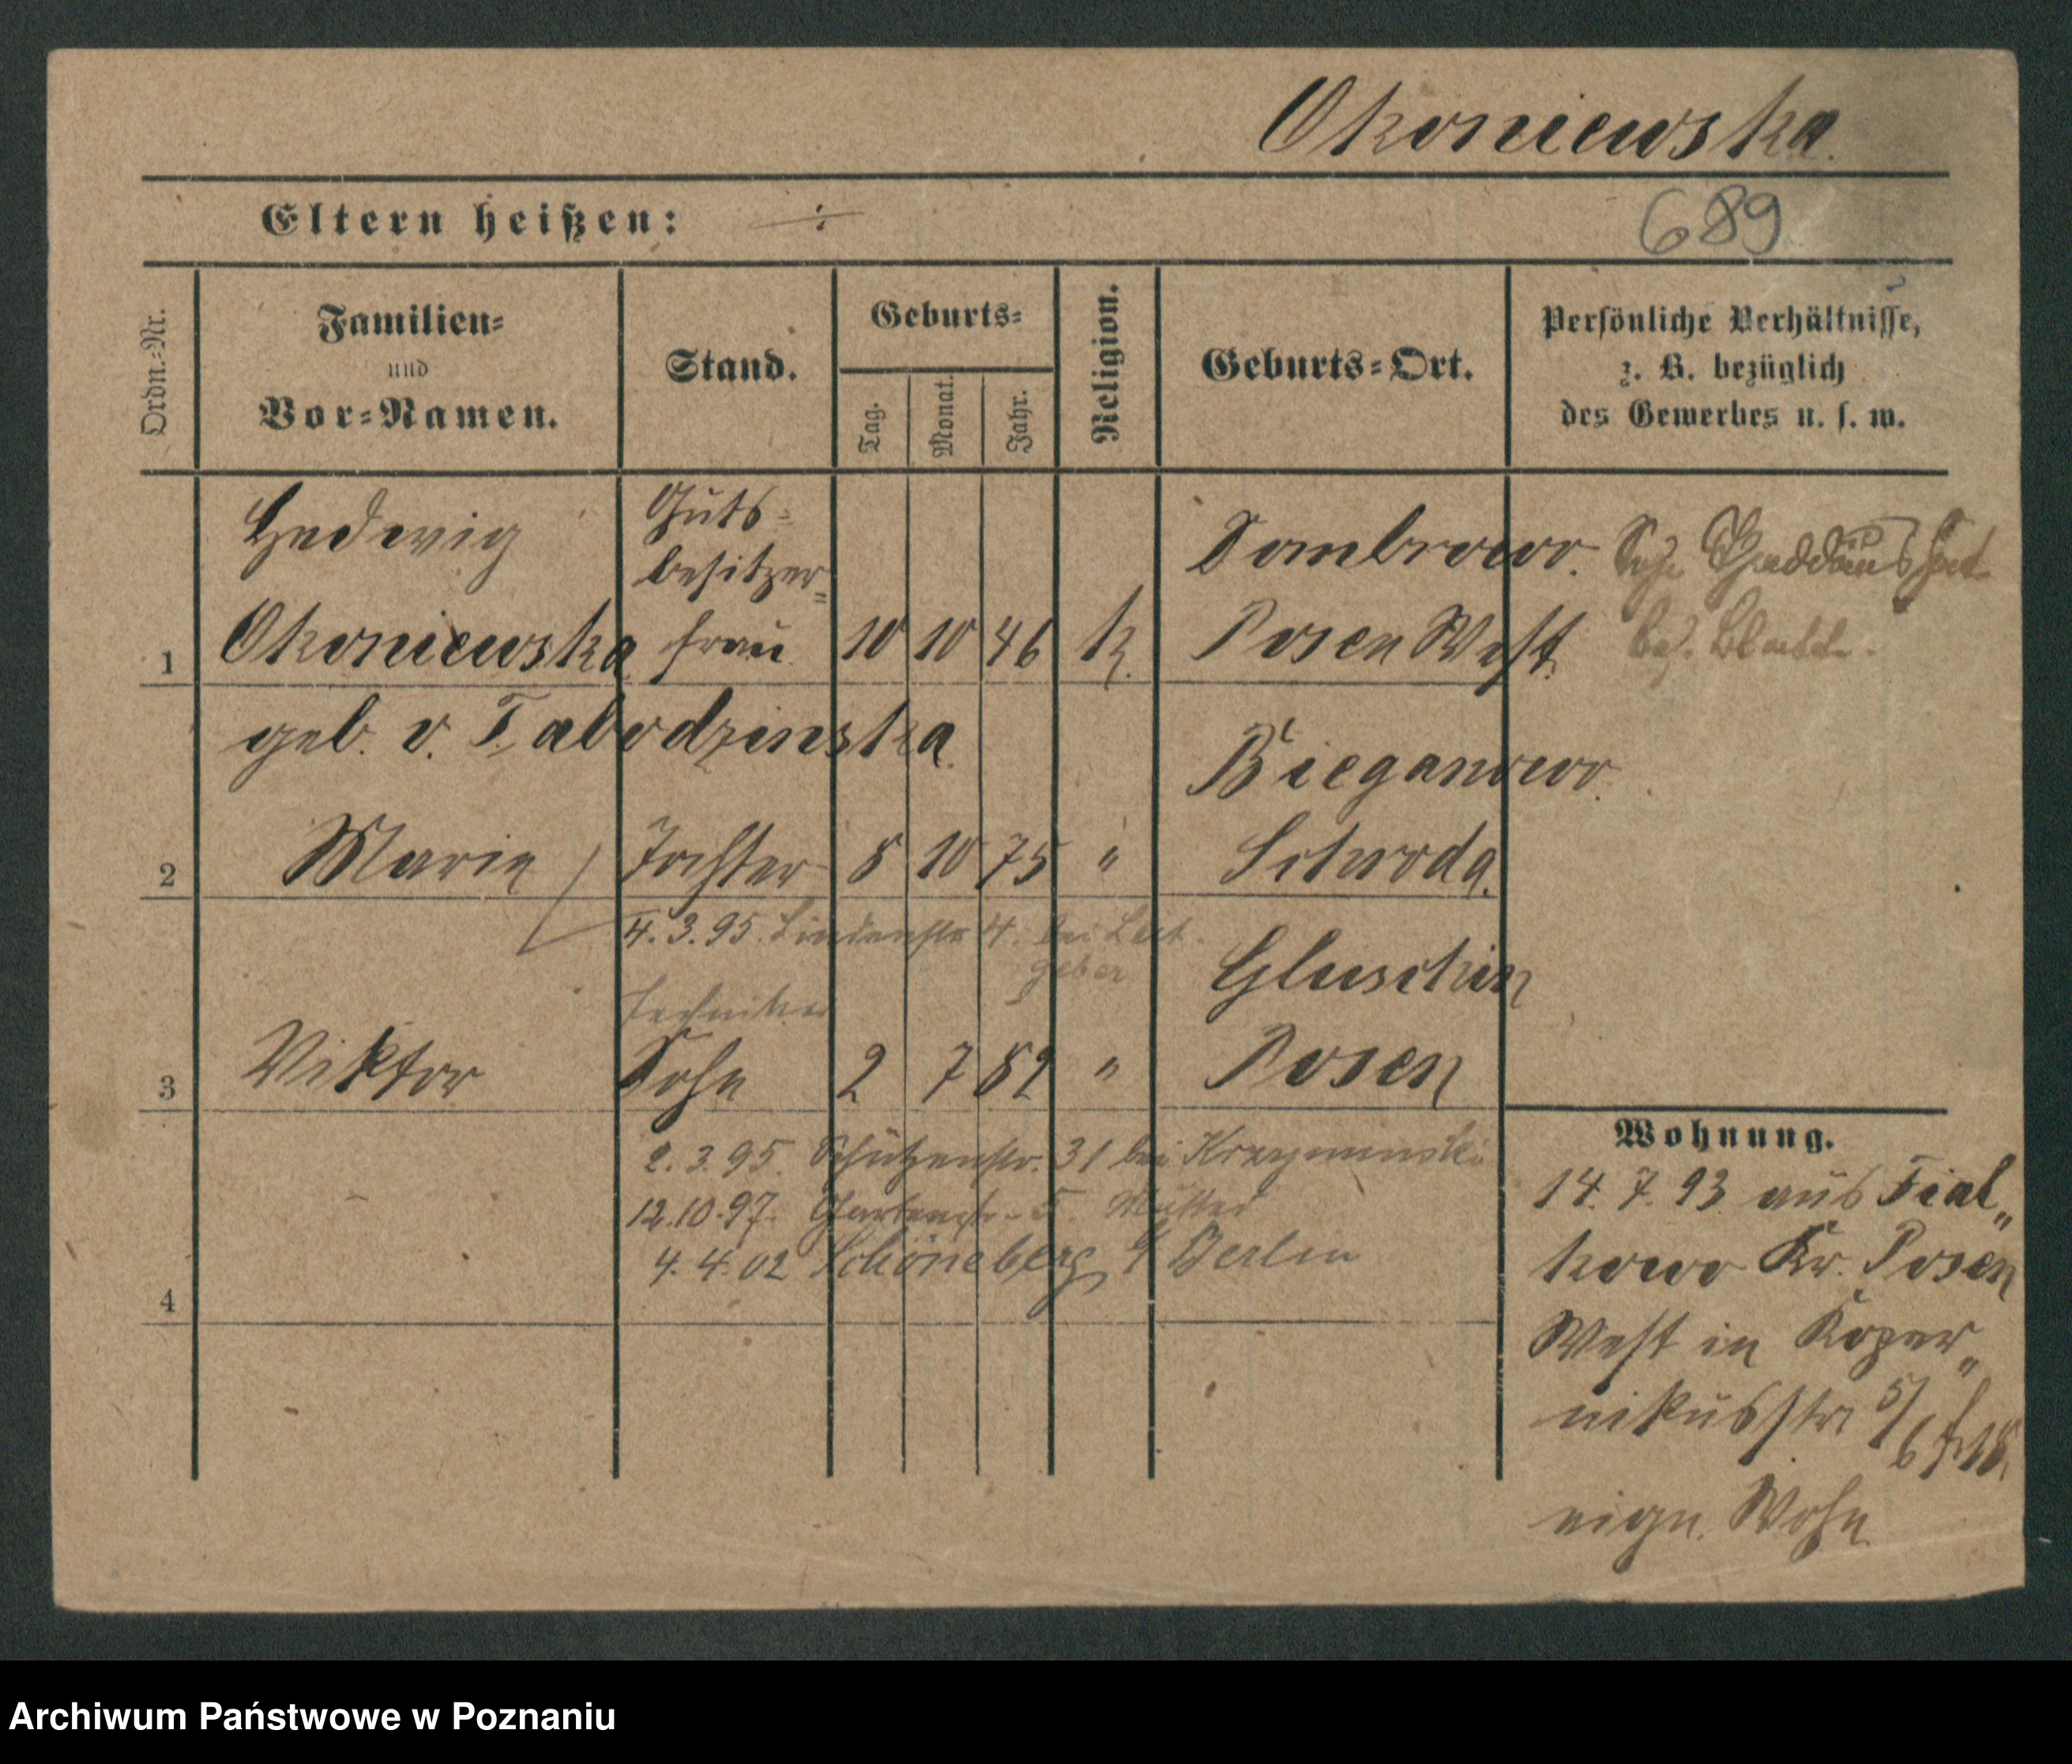 Okoniewska.
Eltern heißen: ÷
689
Ordn.-Nr.
Familien-
und
Vor-Namen.
Stand.
Geburts-
Tag.
Monat.
Jahr.
Religion.
Geburts-Ort.
Persönliche Verhältnisse,
z. B. bezüglich
des Gewerbes u. s. w.
Hedwig
Guts-
besitzer-
Dombrowo.
Thaddäus hat
1 Okoniewska frau 10 10 46 K. Posen West.
geb. v.
Bieganowo.
2 Marie Tochter 8 10 75 " Schroda.
4.3.95. Lindenstr 4. bei Leit
geber
Gluschin
Techniker
3 Viktor Sohn 2 7 82 " Posen
2.3.95. Schützenstr. 31 bei
12.10.97. Gartenstr. 5. Mutter
4.4.02 Schöneberg b/ Berlin
4
Wohnung.
14.7.93. aus Fial„
kowo Kr. Posen
West in Koper„
nikusstr 5/
6
eign. Wohn
Archiwum Państwowe w Poznaniu